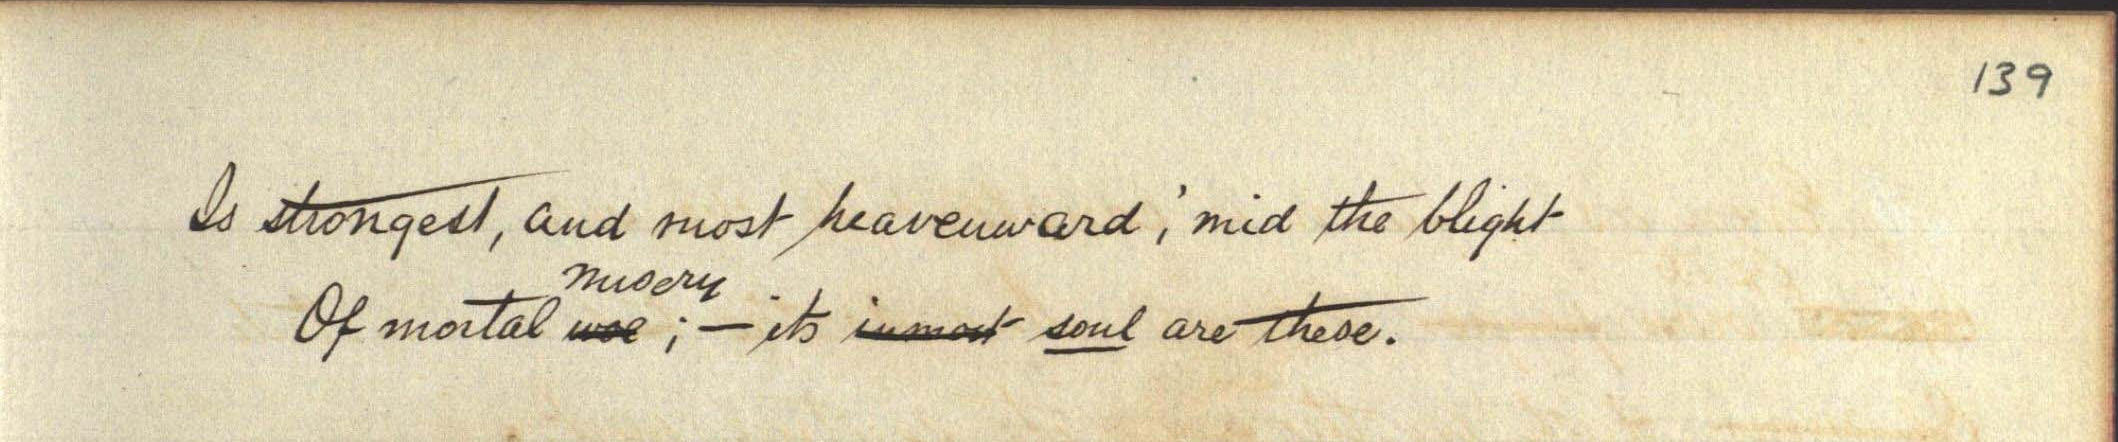 139
Is strongest, and most heavenward, 'mid the blight
misery
Of mortal woe ; — its inmost soul are these.